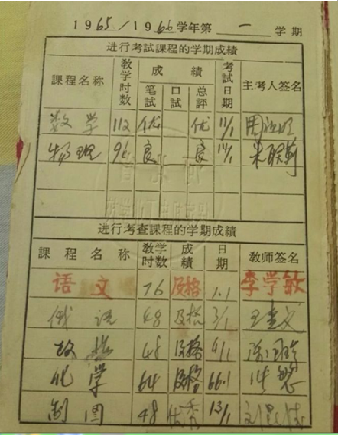 1965/1966学年第一学期
进行考试课程的学期成绩
课程名称 教学时数 成绩 笔试 口试 总评 考试日期 主考人签名
数学 112 优 优 11/1
物理 96 良 良 14/1
进行考查课程的学期成绩
课程名称 教学时数 成绩 日期 教师签名
语文 76 及格 1.1 李学敏
俄语 48 及格 3/1
政治 48 及格 4/1
化学 64 及格 66.1
制图 48 优秀 13/1